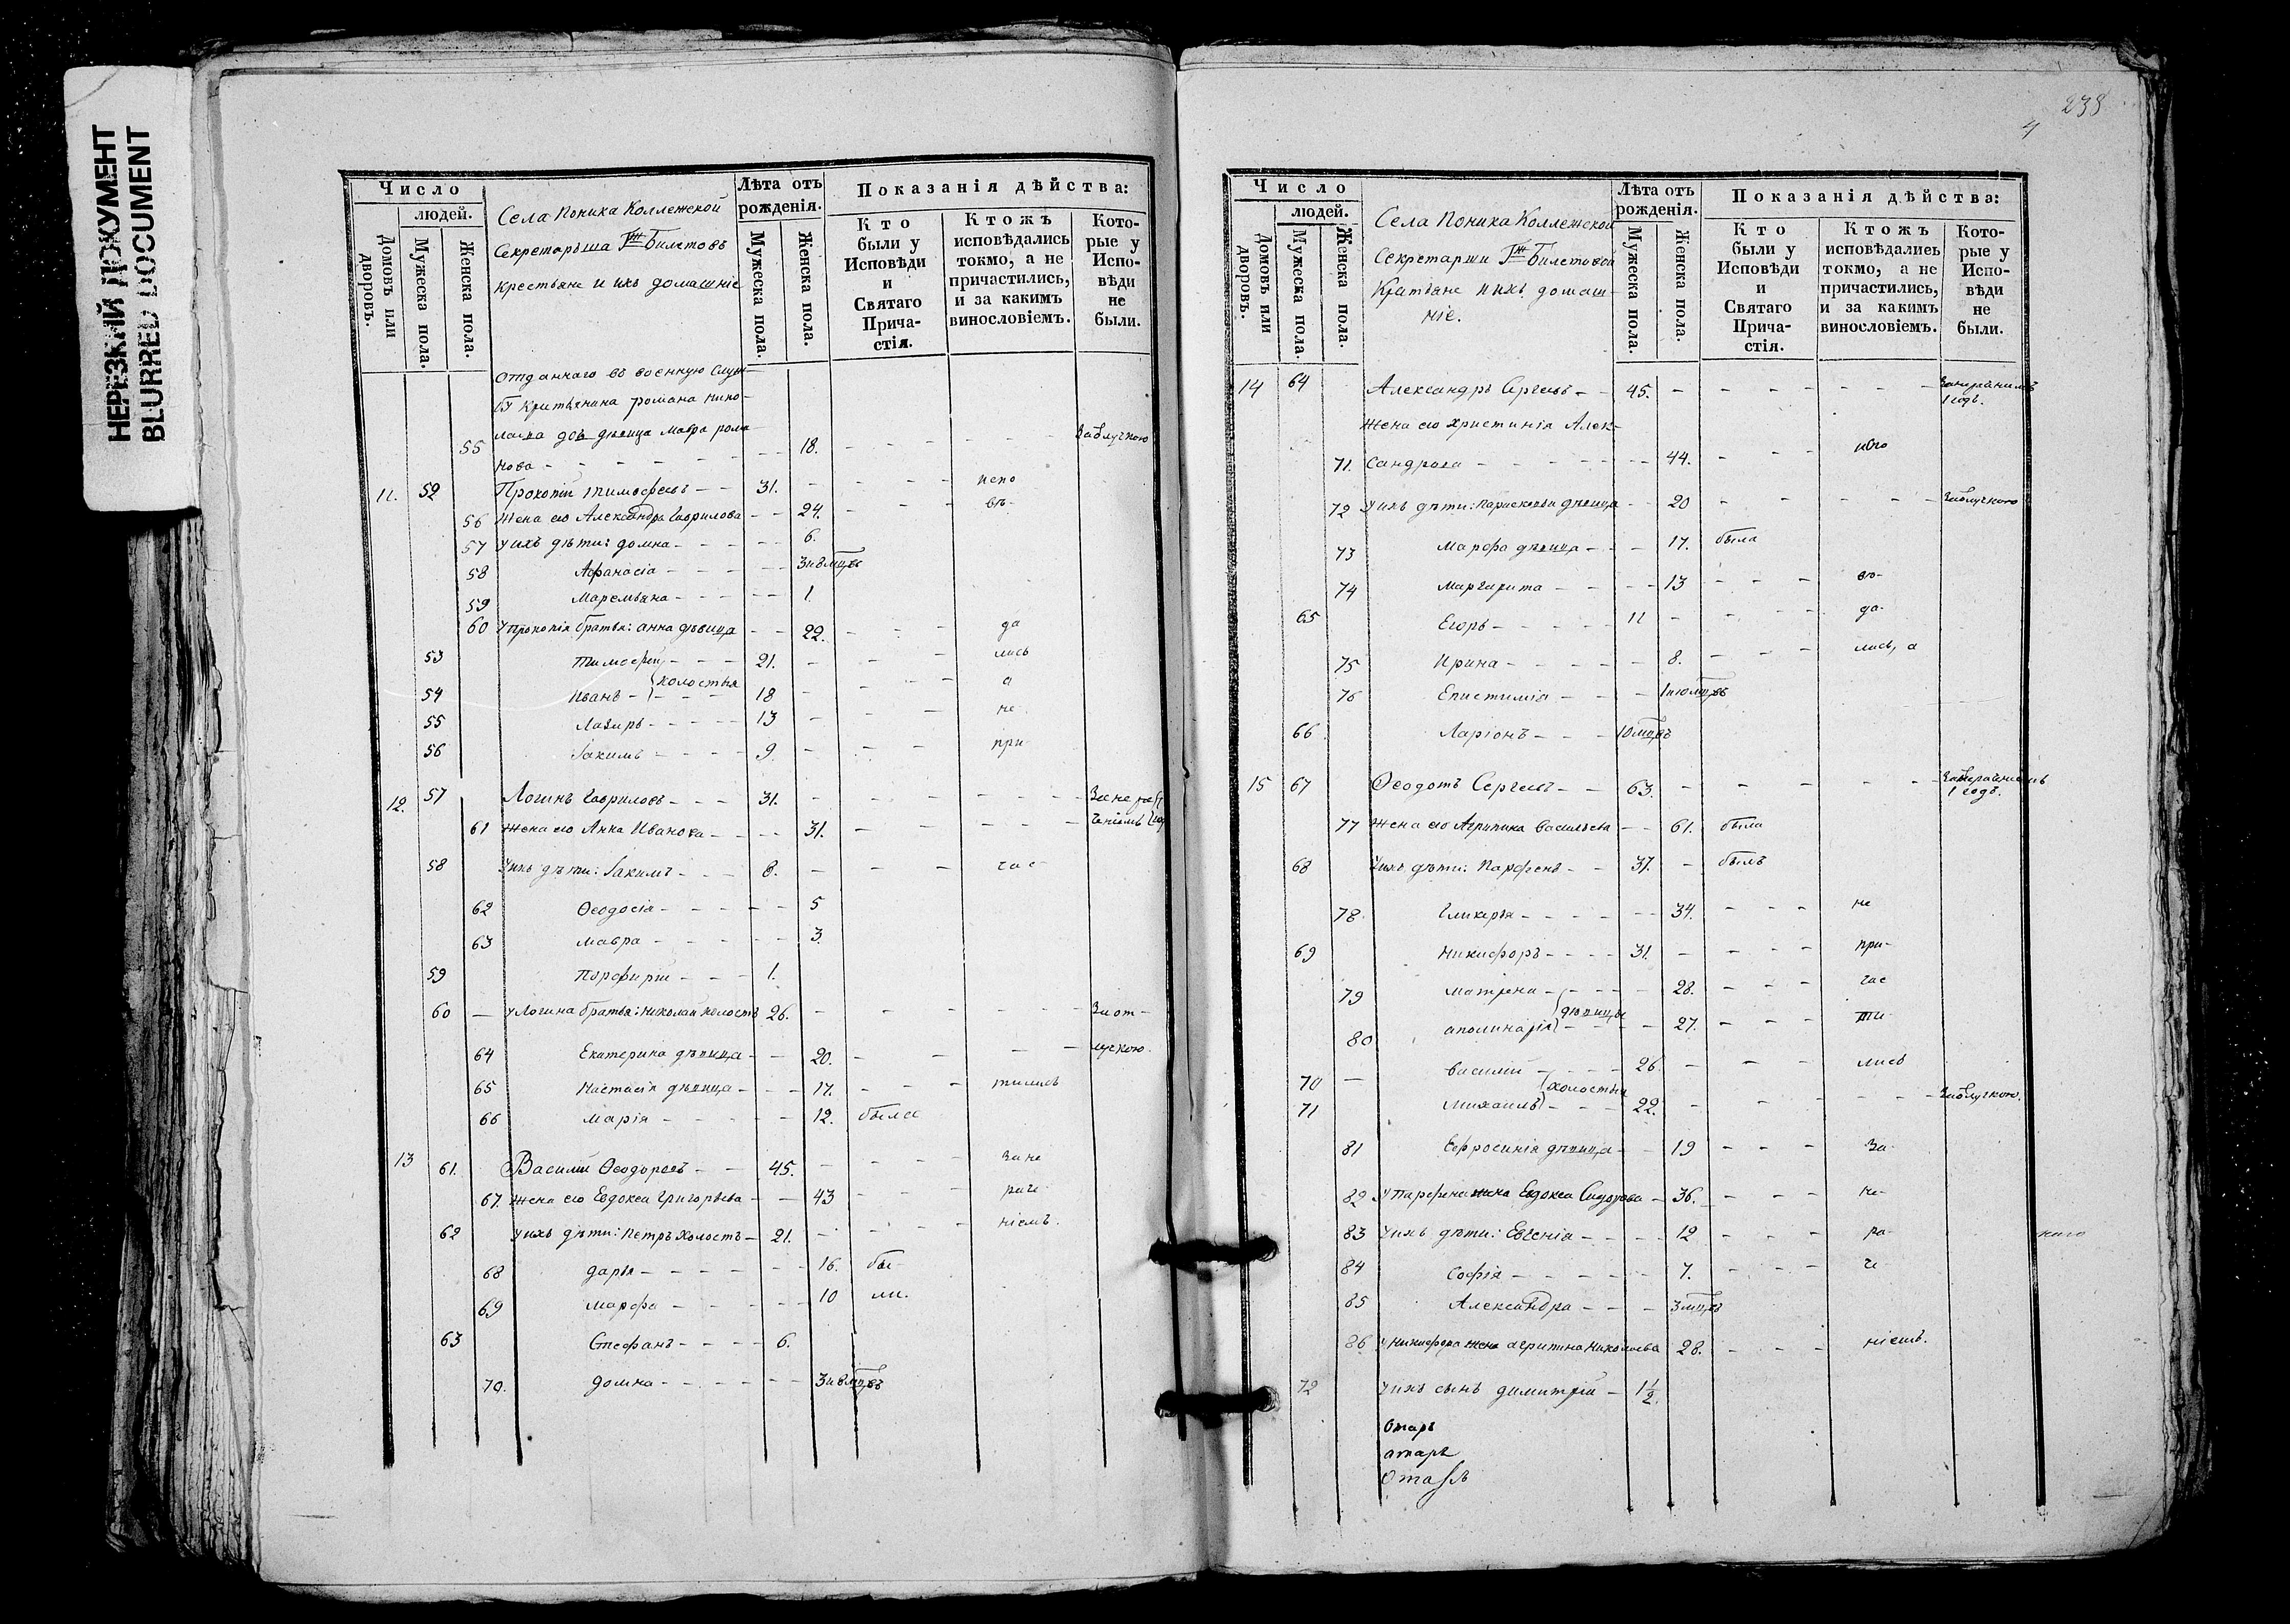 НЕРЕЗКИЙ ДОКУМЕНТ
BLURRED DOCUMENT
Число
людей.
Домовъ или дворовъ.
Мужеска пола.
Женска пола.
Села Поника Коллежской
Секретарша Гж Билетовъ
крестьяне и ихъ домашніе
Лѣта отъ рожденія.
Мужеска пола.
Женска пола.
Показанія дѣйства:
Кто были у Исповѣди и Святаго Причастія.
Ктожъ исповѣдались токмо, а не причастились, и за какимъ винословіемъ.
Которые у Исповѣди не были.
Отданнаго въ военную служ-
бу кр
Романа Нико-
лаева дѣвица Мавра Рома-
55 нова - 18. За
11. 52 Прокопій Тимофеевъ - 31. - испо
56 Жена его Александра Гаврилова - 24. - въ-
57 У ихъ дѣти: Домна - 6.
58 Афанасія - 3 и 8 мцвъ
59 Маремьяна - 1.
60 У Прокопія братья: Анна дѣвица - 22. - да
53 Тимофей - 21. - лись
холостыя
54 Иванъ - 18 - а
55 Лазарь - 13 - не
56 Іакимъ - 9. - при
12. 57 Логинъ Гавриловъ - 31. - За не ра
61 Жена его Анна Иванова - 31. - ченіемъ
58 У ихъ дѣти: Іакимъ - 8. - час
62 Ѳеодосія - 5
63 Мавра - 3.
59 Порфирій - 1.
60 - У Логина братья: Николай холостъ 26. - За от-
64 Екатерина дѣвица - 20. - лучкою.
65 Настасія дѣвица - 17. - тились
66 Марія - 12. была
13 61. Василій Ѳеодоровъ - 45. - За не
67. Жена его Евдокса Григорьева - 43 - раче
62 У ихъ дѣти: Петръ холостъ - 21. - ніемъ.
68 Дарья - 16. бы-
69 Марфа - 10 ли.
63 Стефанъ - 6.
70. Домна - 3 и 8 мцвъ
238
4
Число
людей.
Домовъ или дворовъ.
Мужеска пола.
Женска пола.
Села Поника Коллежской
Секретарши Гж Билетовой
Кр
и ихъ домаш-
ніе.
Лѣта отъ рожденія.
Мужеска пола.
Женска пола.
Показанія дѣйства:
Кто были у Исповѣди и Святаго Причастія.
Ктожъ исповѣдались токмо, а не причастились, и за какимъ винословіемъ.
Которые у Исповѣди не были.
14 64 Александръ Сергеевъ - 45. -
1 годъ.
Жена его Христинія Алек-
71. сандрова - 44. - испо
72 У ихъ дѣти: Парасковья дѣвица - 20 -
73 Марфа дѣвица - 17. была
74 Маргарита - 13 - въ-
65 Егоръ - 11 - да-
75 Ирина - 8. - лись, а
76 Епистимія - 1 и 10 мцвъ
66 Ларіонъ - 10 мцвъ
15 67 Ѳеодотъ Сергеевъ - 63. -
1 годъ.
77 Жена его Агрипина Васильева - 61. была
68 У ихъ дѣти: Парфенъ - 37. - былъ
78. Гликерья - 34. - не
69 Никифоръ - 31. - при-
79 Матрена - 28. - час
дѣвицы
80 Аполинарія - 27. - ти-
70 - Василій - 26. - лись
холостыя
71 Михаилъ - 22. -
81 Ефросинія дѣвица - 19 - За-
82 У Парфена жена Евдокса Сидорова - 36. - не-
83 У ихъ дѣти: Евгенія - 12 - ра-
84 Софія - 7. - че-
85 Александра - 3 мцвъ
86 У Никифора жена Агрипина Николаева 28. - ніемъ.
72 У ихъ сынъ Димитрій - 1 1/2.